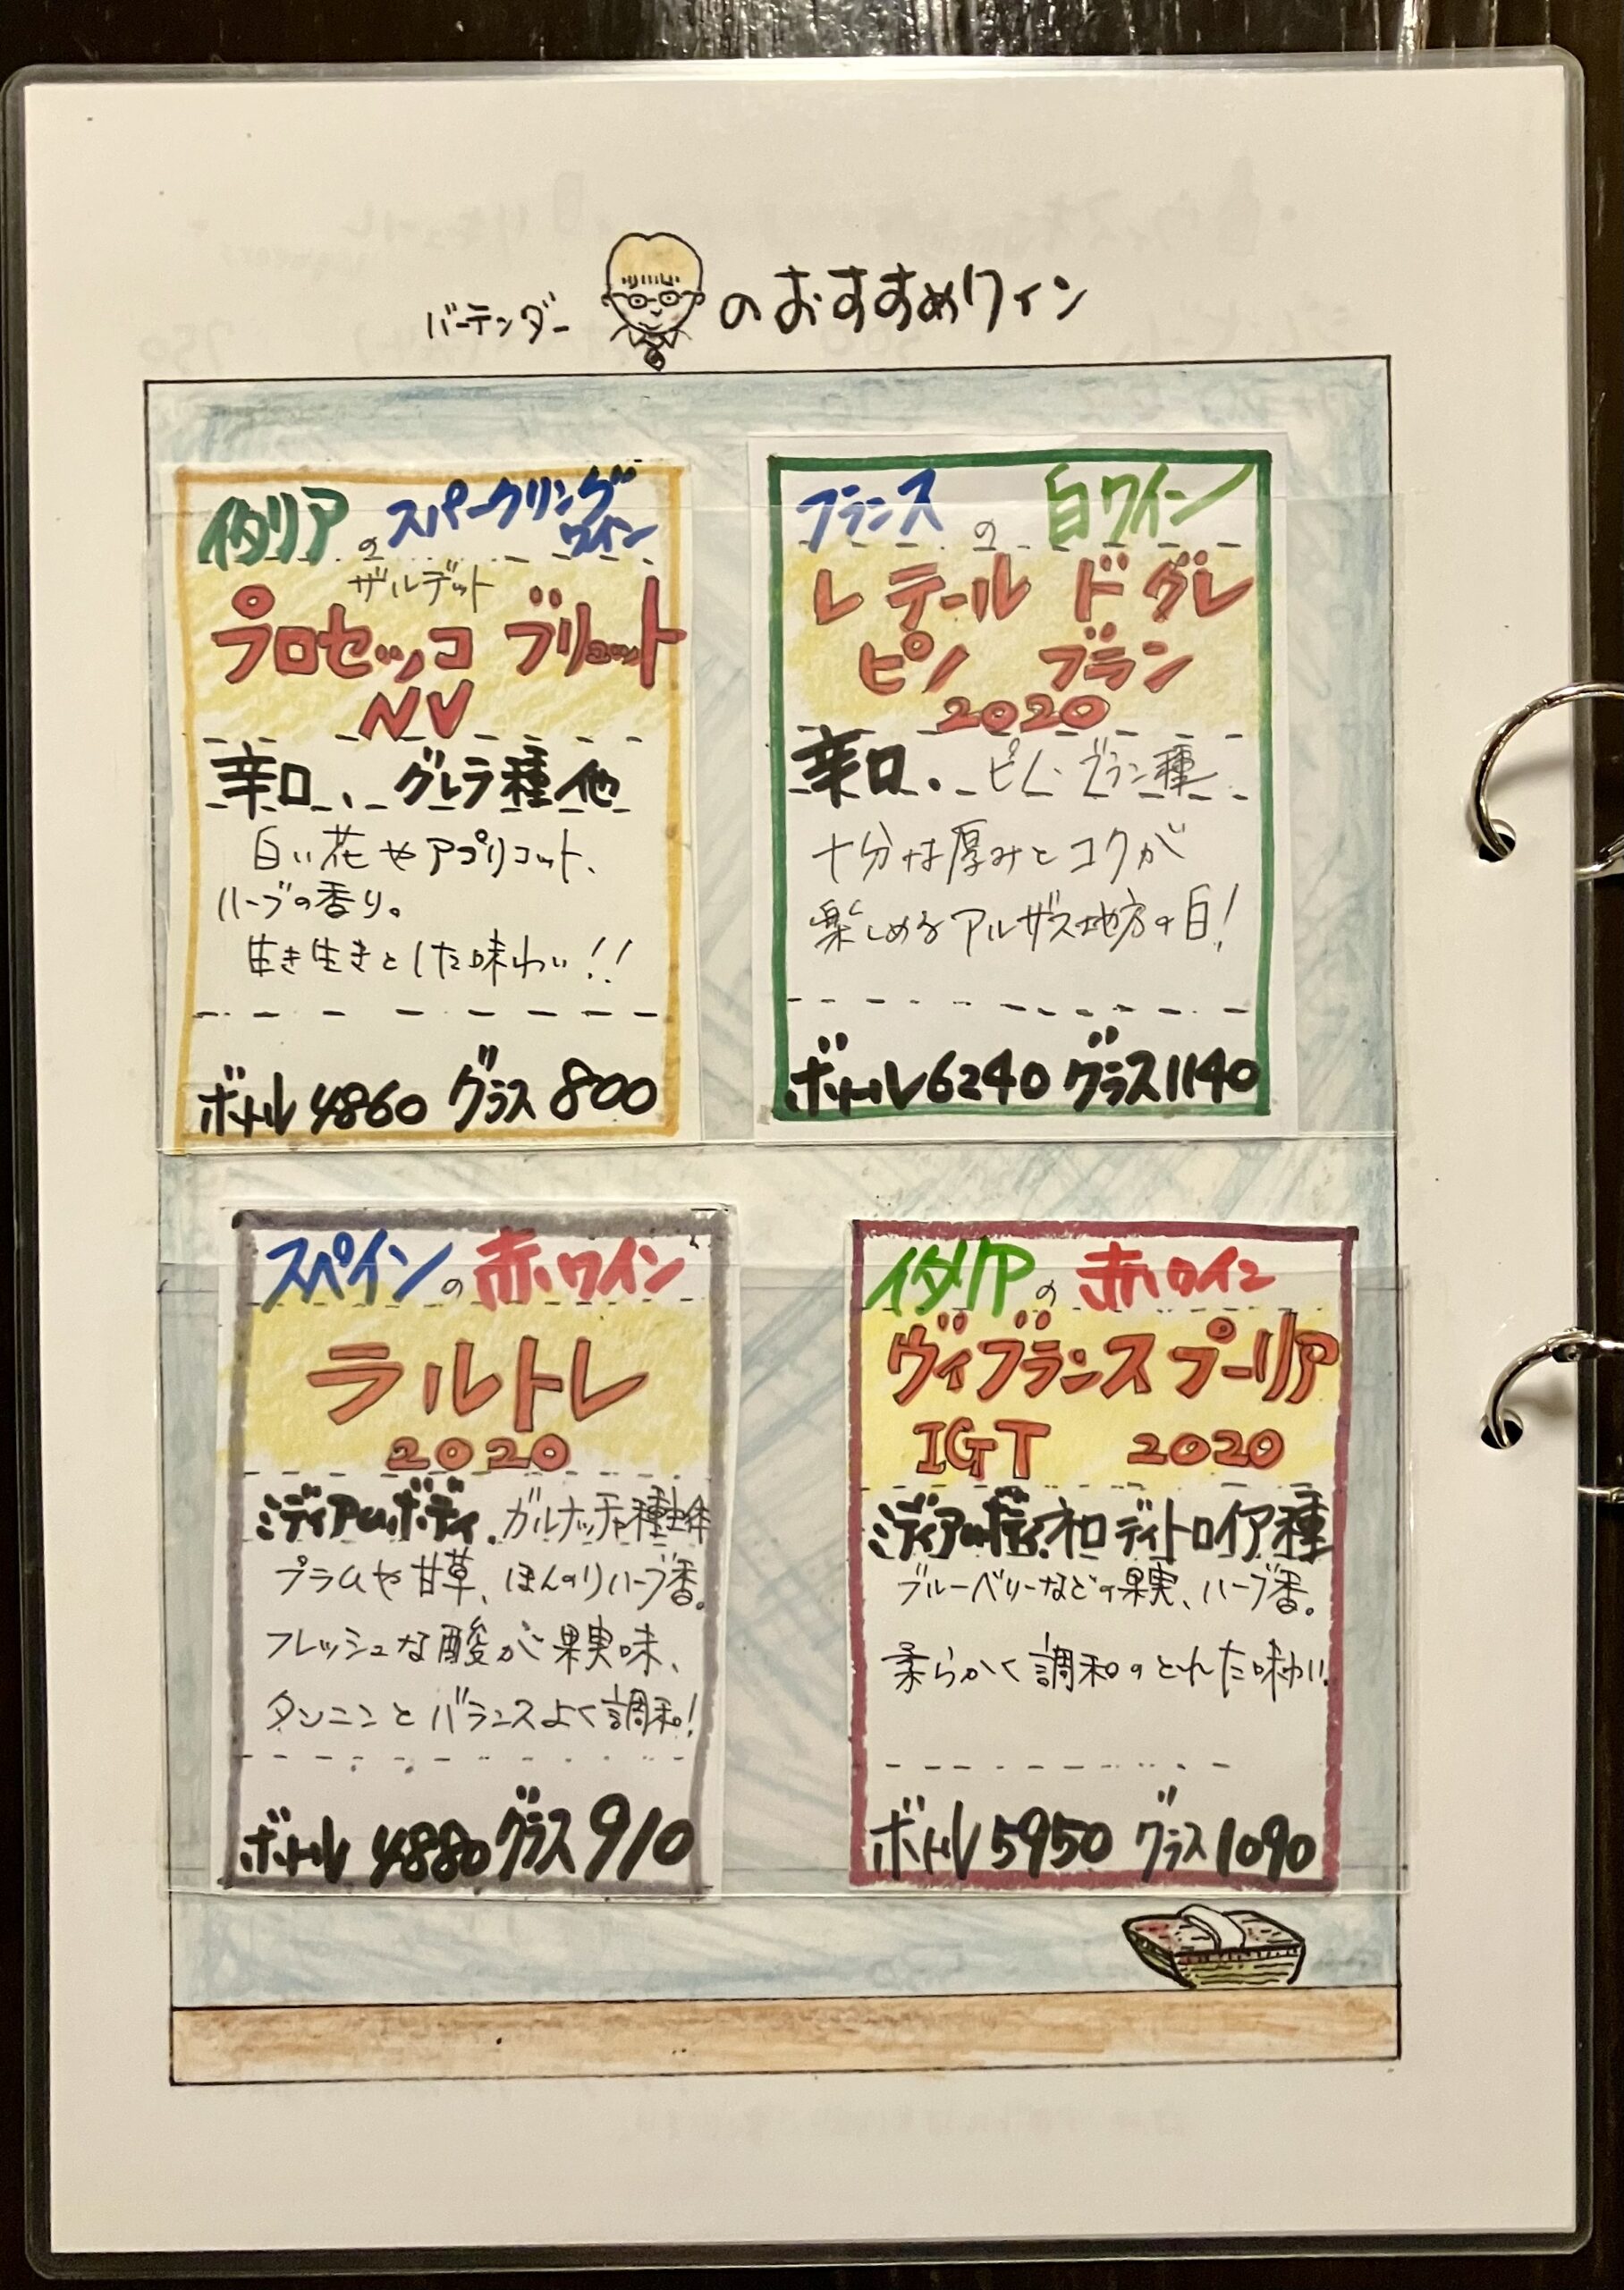 バーテンダー のおすすめワイン
イタリアのスパークリングワイン
ザルデット
プロセッコ ブリュット
NV
辛口、グレラ種他
白い花やアプリコット、
ハーブの香り。
生き生きとした味わい!!
ボトル4860 グラス800
フランスの白ワイン
レ テール ド グレ
ピノ ブラン
2020
辛口. ピノ・ブラン種
十分な厚みとコクが
楽しめるアルザス地方の白!
ボトル6240 グラス1140
スペインの赤ワイン
ラルトレ
2020
ミディアムボディ.ガルナッチャ種主体
プラムや甘草、ほんのりハーブ香。
フレッシュな酸が果実味、
タンニンとバランスよく調和!
ボトル 4880 グラス910
イタリアの赤ワイン
ヴィブランス プーリア
IGT 2020
ミディアムボディ.ネロ ディトロイア種
ブルーベリーなどの果実、ハーブ香。
柔らかく調和のとれた味わい.
ボトル5950 グラス1090